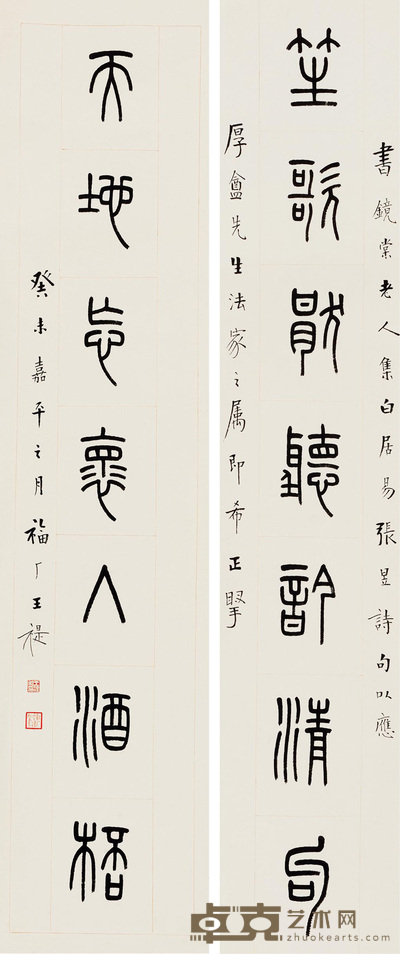 書鏡棠老人集白居易張昱詩句以應
笙歌散聽訡清句
厚盦先生法家之属即希正掔
天地忘懷入酒桮
癸未嘉平之月福厂王禔
卓克艺术网
zhuokearts.com